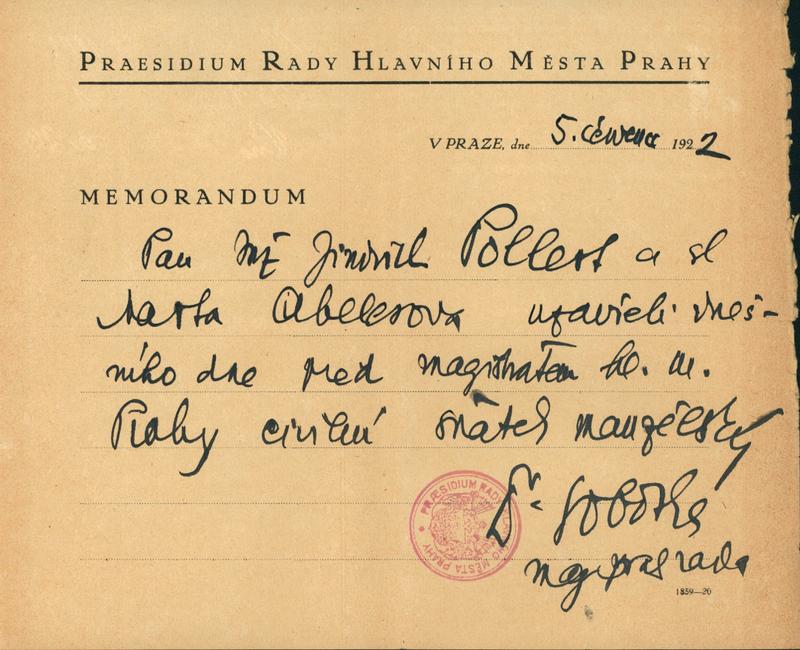 PRAESIDIUM RADY HLAVNÍHO MĚSTA PRAHY
V PRAZE, dne 5. července 1922
MEMORANDUM
Pan Inž Jindřich Pollert a sl
Marta Abelesova uzavřeli dneš-
ního dne před magistrátem hl. m.
Prahy civilní sňatek manželský
Dr. Sobotka
mag. rada
PRAESIDIUM RADY HLAVNÍHO MĚSTA PRAHY
1859—20